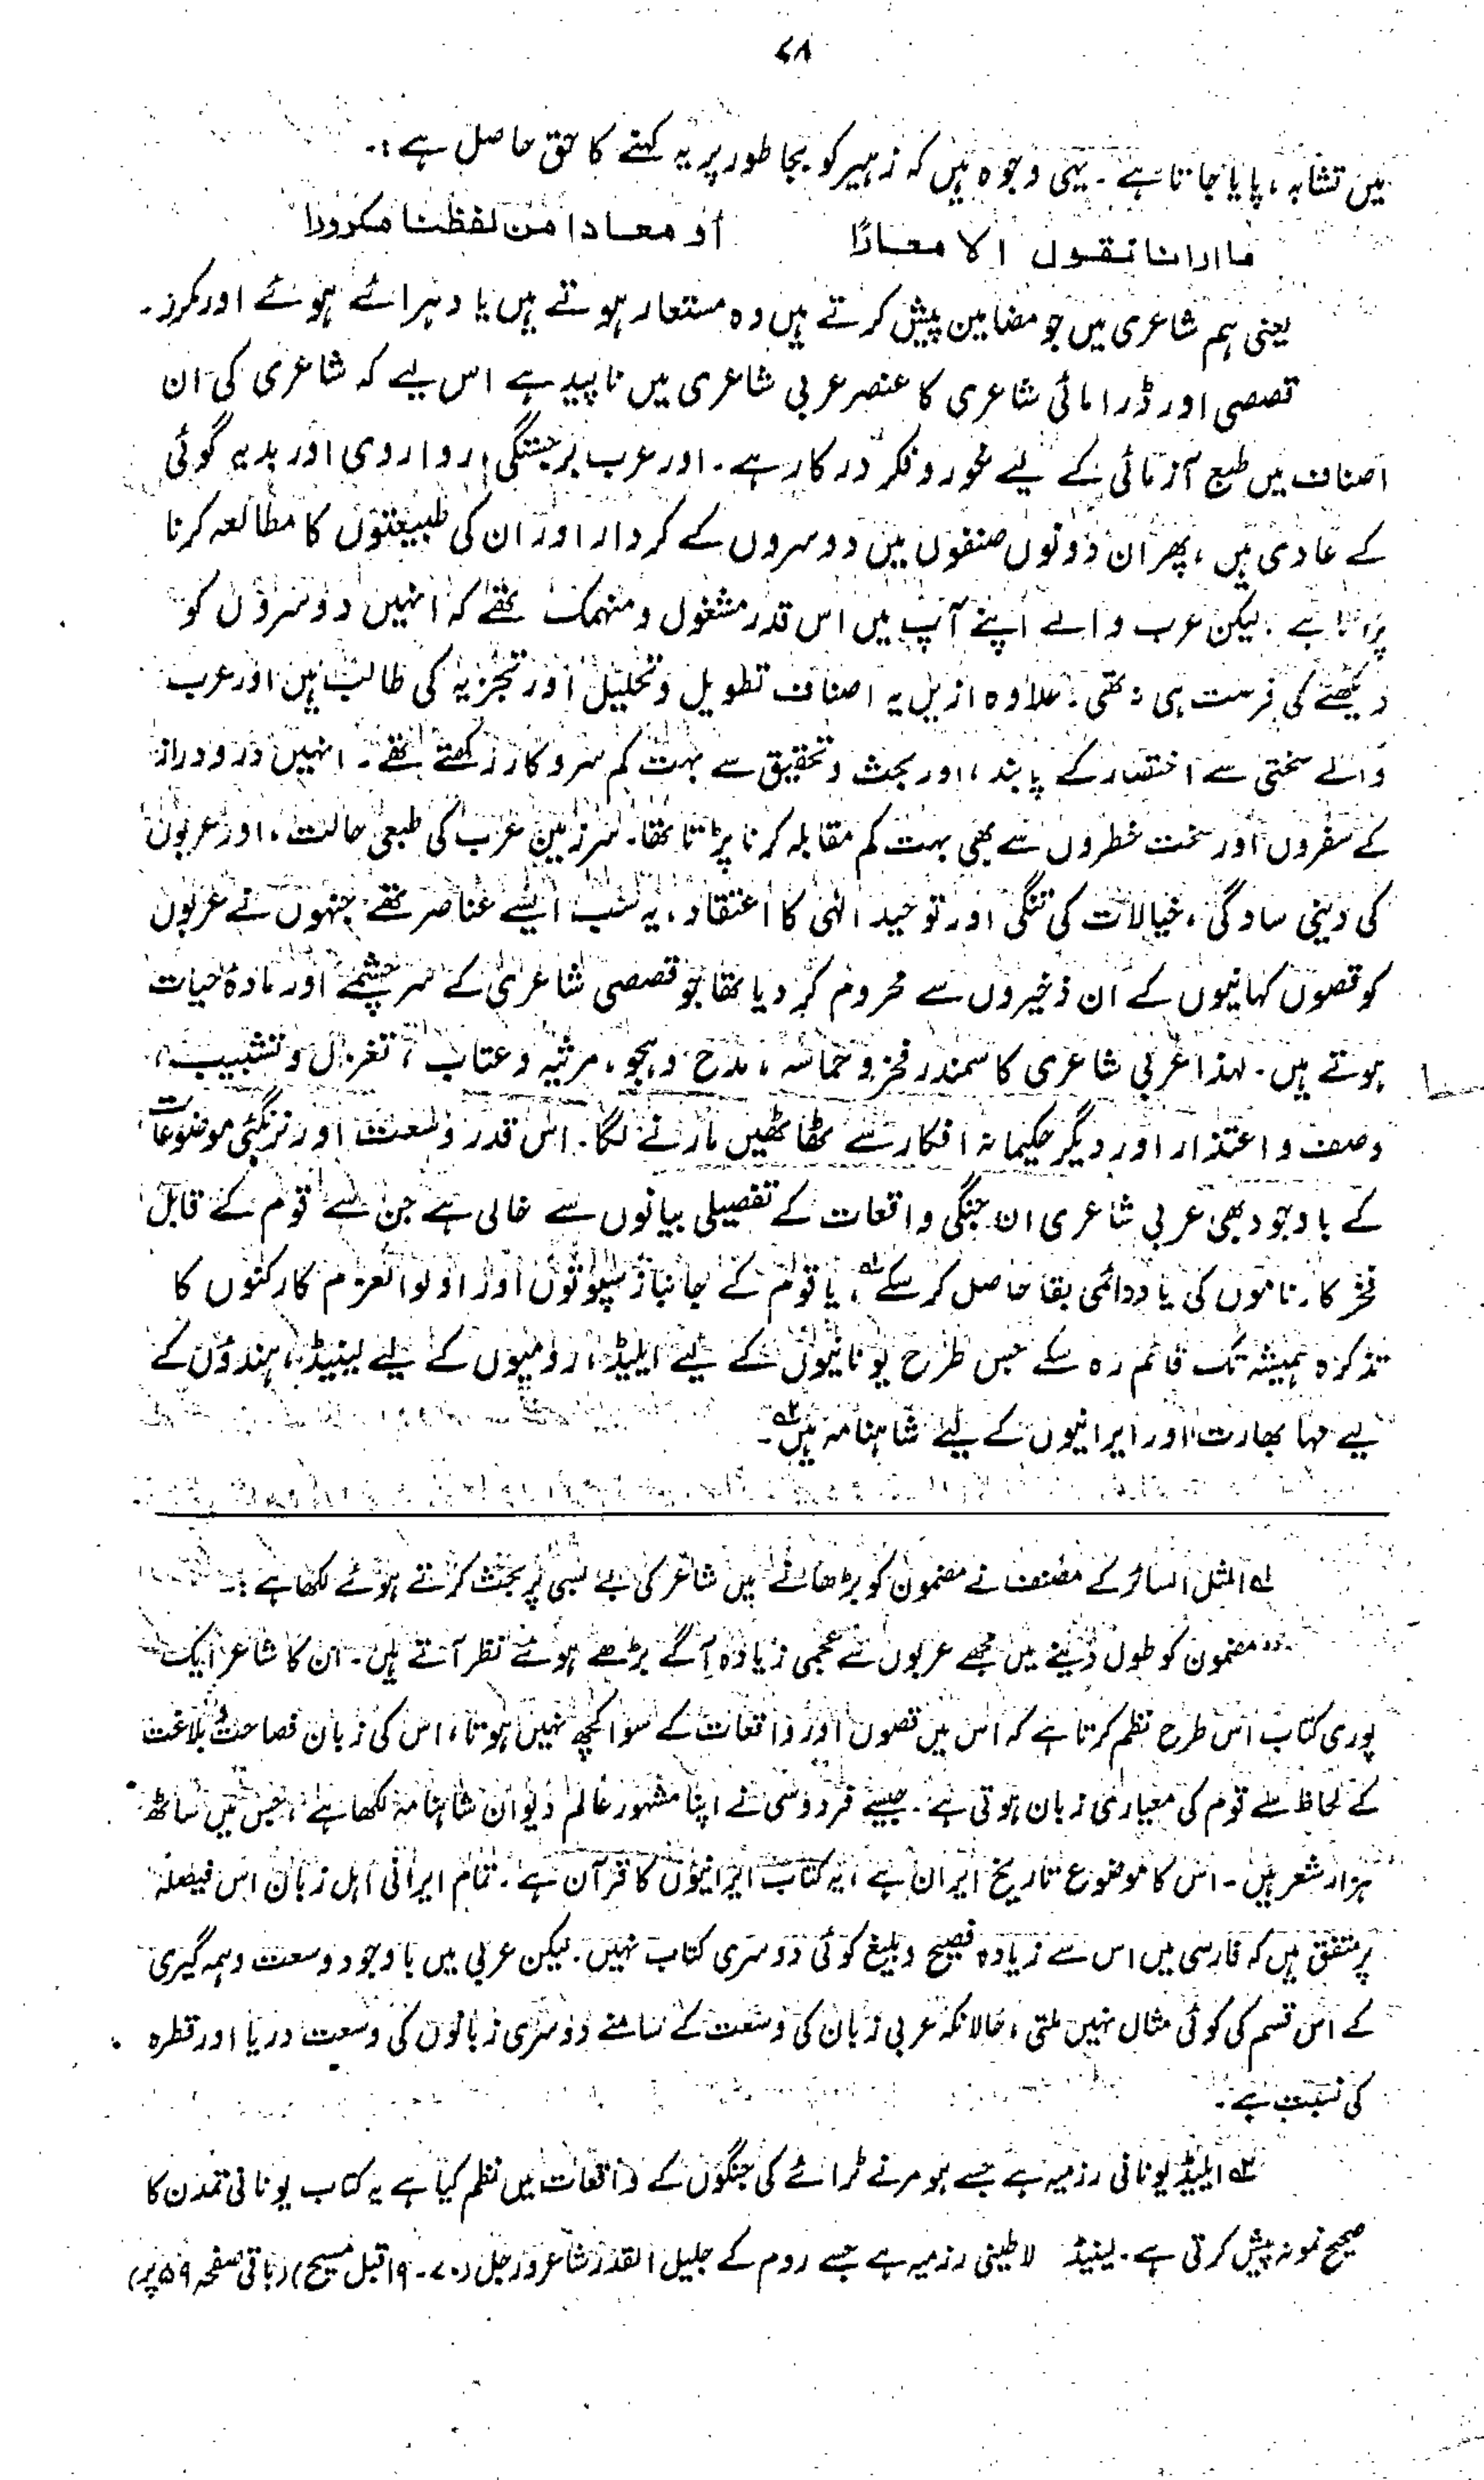 ۷۸
میں تشابہ، پایا جاتا ہے۔ یہی وجوہ ہیں کہ زہیر کو بجا طور پر یہ کہنے کا حق حاصل ہے:۔
ما ارانا نقول الا معارًا أو معادا من لفظنا مکرورا
یعنی ہم شاعری میں جو مضامین پیش کرتے ہیں وہ مستعار ہوتے ہیں یا دہرائے ہوئے اور مکرر۔
قصصی اور ڈرامائی شاعری کا عنصر عربی شاعری میں ناپید ہے اس لیے کہ شاعری کی ان
اصناف میں طبع آزمائی کے لیے غور و فکر درکار ہے۔ اور عرب برجستگی، رواروی اور بدیہ گوئی
کے عادی ہیں، پھر ان دونوں صنفوں میں دوسروں کے کردار اور ان کی طبیعتوں کا مطالعہ کرنا
پڑتا ہے۔ لیکن عرب والے اپنے آپ میں اس قدر مشغول و منہمک تھے کہ انہیں دوسروں کو
دیکھنے کی فرصت ہی نہ تھی۔ علاوہ ازیں یہ اصناف تطویل و تحلیل اور تجزیہ کی طالب ہیں اور عرب
والے سختی سے اختصار کے پابند، اور بحث و تحقیق سے بہت کم سروکار رکھتے تھے۔ انہیں دور و دراز
کے سفروں اور سخت خطروں سے بھی بہت کم مقابلہ کرنا پڑتا تھا۔ سرزمین عرب کی طبعی حالت، اور عربوں
کی دینی سادگی، خیالات کی تنگی اور توحید الٰہی کا اعتقاد، یہ سب ایسے عناصر تھے جنہوں نے عربوں
کو قصوں کہانیوں کے ان ذخیروں سے محروم کر دیا تھا جو قصصی شاعری کے سرچشمے اور مادۂ حیات
ہوتے ہیں۔ لہذا عربی شاعری کا سمندر فخر و حماسہ، مدح و ہجو، مرثیہ و عتاب، تغزل و تشبیب،
وصف و اعتذار اور دیگر حکیمانہ افکار سے ٹھاٹھیں مارنے لگا۔ اس قدر وسعت اور نیرنگئی موضوعات
کے باوجود بھی عربی شاعری ان جنگی واقعات کے تفصیلی بیانوں سے خالی ہے جن سے قوم کے قابل
فخر کارناموں کی یاد دائمی بقا حاصل کر سکے؎۱، یا قوم کے جانباز سپوتوں اور اولوالعزم کارکنوں کا
تذکرہ ہمیشہ تک قائم رہ سکے جس طرح یونانیوں کے لیے ایلیڈ، رومیوں کے لیے لینیڈ، ہندوؤں کے
لیے مہا بھارت اور ایرانیوں کے لیے شاہنامہ ہیں؎۲۔
؎۱ المثل السائر کے مصنف نے مضمون کو بڑھانے میں شاعر کی بے بسی پر بحث کرتے ہوئے لکھا ہے:۔
"مضمون کو طول دینے میں مجھے عربوں سے عجمی زیادہ آگے بڑھے ہوئے نظر آتے ہیں۔ ان کا شاعر ایک
پوری کتاب اس طرح نظم کرتا ہے کہ اس میں قصوں اور واقعات کے سوا کچھ نہیں ہوتا، اس کی زبان فصاحت و بلاغت
کے لحاظ سے قوم کی معیاری زبان ہوتی ہے۔ جیسے فردوسی نے اپنا مشہور عالم دیوان شاہنامہ لکھا ہے، جس میں ساٹھ
ہزار شعر ہیں۔ اس کا موضوع تاریخ ایران ہے، یہ کتاب ایرانیوں کا قرآن ہے۔ تمام ایرانی اہل زبان اس فیصلہ
پر متفق ہیں کہ فارسی میں اس سے زیادہ فصیح و بلیغ کوئی دوسری کتاب نہیں۔ لیکن عربی میں باوجود وسعت و ہمہ گیری
کے اس قسم کی کوئی مثال نہیں ملتی، حالانکہ عربی زبان کی وسعت کے سامنے دوسری زبانوں کی وسعت دریا اور قطرہ
کی نسبت ہے۔
؎۲ ایلیڈ یونانی رزمیہ ہے جسے ہومر نے ٹرائے کی جنگوں کے واقعات میں نظم کیا ہے یہ کتاب یونانی تمدن کا
صحیح نمونہ پیش کرتی ہے۔ لینیڈ لاطینی رزمیہ ہے جسے روم کے جلیل القدر شاعر ورجل (۷۰۔۱۹ قبل مسیح) (باقی صفحہ ۵۹ پر)